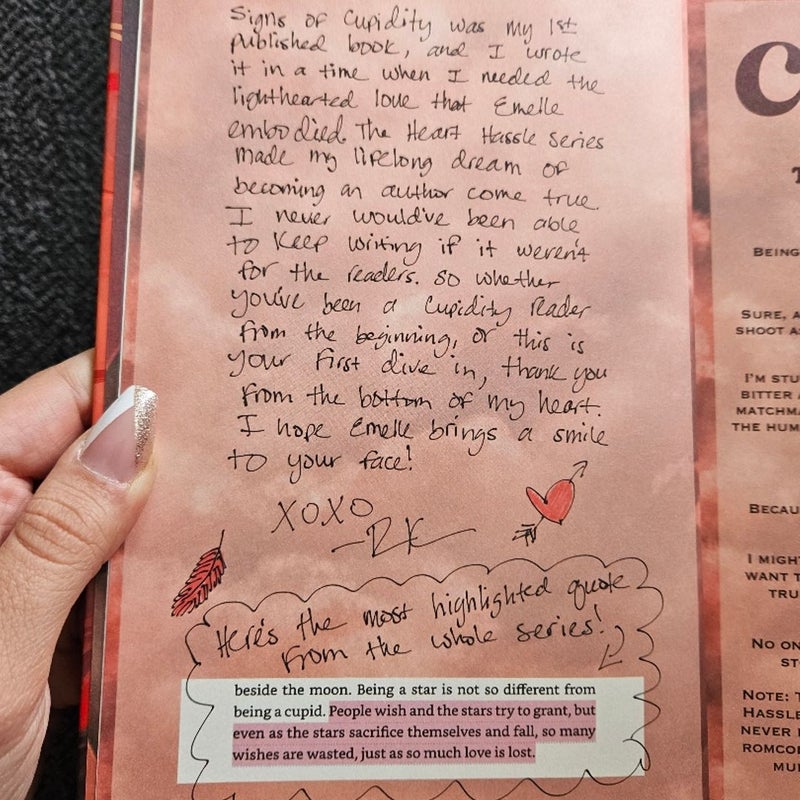 Signs of Cupidity was my 1st
published book, and I wrote
it in a time when I needed the
lighthearted love that Emelle
embodied. The Heart Hassle series
made my lifelong dream of
becoming an author come true.
I never would've been able
to keep writing if it weren't
for the readers. So whether
you've been a Cupidity reader
from the beginning, or this is
your first dive in, thank you
from the bottom of my heart.
I hope Emelle brings a smile
to your face!
XOXO
-RK
Here's the most highlighted quote
from the whole series!
beside the moon. Being a star is not so different from
being a cupid. People wish and the stars try to grant, but
even as the stars sacrifice themselves and fall, so many
wishes are wasted, just as so much love is lost.
C
T
BEING
SURE, A
SHOOT AS
I'M STU
BITTER A
MATCHMA
THE HUM
BECAU
I MIGHT
WANT T
TRU
NO ON
ST
NOTE: T
HASSLE
NEVER
ROMCO
MU